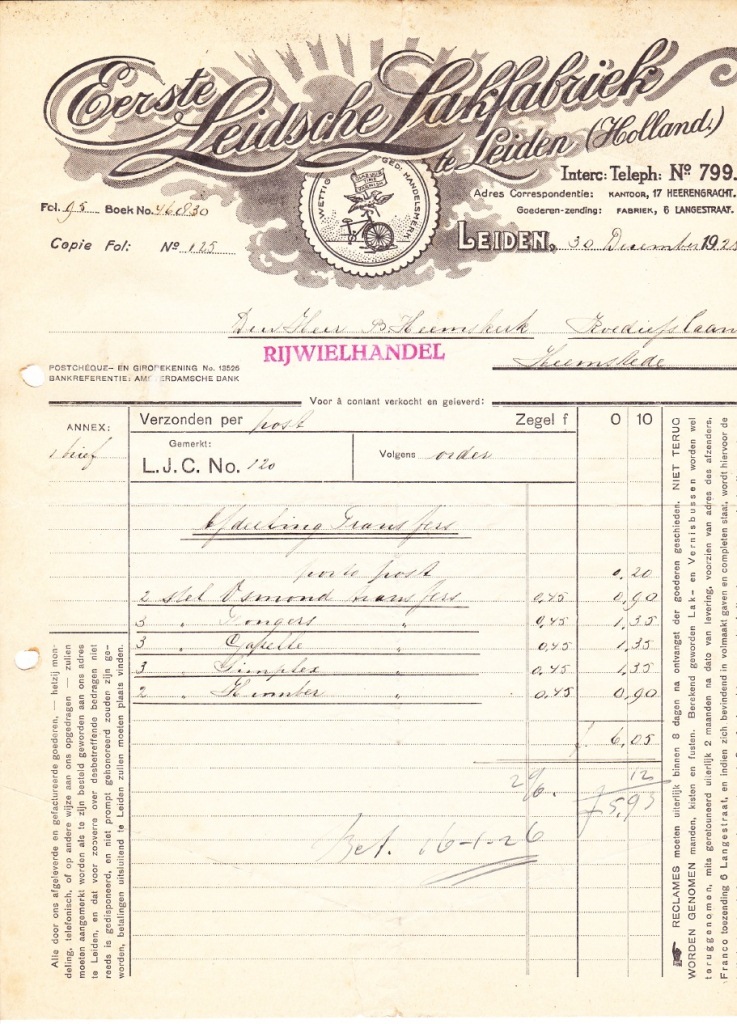 Eerste
Leidsche Lakfabriek
te Leiden (Holland.)
Interc: Teleph: No 799.
Adres Correspondentie: KANTOOR, 17 HEERENGRACHT.
Goederen-zending: FABRIEK, 6 LANGESTRAAT.
WETTIG GED: HANDELSMERK
Fol. 95 Boek No. 46830
Copie Fol: No 125
LEIDEN, 30 December 1925
Den Heer B. Heemskerk
RIJWIELHANDEL
Heemstede
POSTCHÈQUE- EN GIROREKENING No. 13526
BANKREFERENTIE: AMSTERDAMSCHE BANK
Voor à contant verkocht en geleverd:
ANNEX:
1 brief
Verzonden per post Zegel f 0 10
Gemerkt:
L.J.C. No. 120
Volgens order
Afdeeling Transfers
porto post 0,20
2 stel Osmond transfers 0,45 0,90
3 " Fongers " 0,45 1,35
3 " Gazelle " 0,45 1,35
3 " Simplex " 0,45 1,35
2 " Humber " 0,45 0,90
f. 6,05
2% 12
f 5,93
Bet. 16-1-26
Alle door ons afgeleverde en gefactureerde goederen, — hetzij mon-
deling, telefonisch, of op andere wijze aan ons opgedragen — zullen
moeten aangemerkt worden als te zijn besteld geworden aan ons adres
te Leiden, en dat voor zooverre over desbetreffende bedragen niet
reeds is gedisponeerd, en niet prompt gehonoreerd zouden zijn ge-
worden, betalingen uitsluitend te Leiden zullen moeten plaats vinden.
☛ RECLAMES moeten uiterlijk binnen 8 dagen na ontvangst der goederen geschieden. NIET TERUG
WORDEN GENOMEN manden, kisten en fusten. Berekend geworden Lak- en Vernisbussen worden wel
teruggenomen, mits geretouneerd uiterlijk 2 maanden na dato van levering, voorzien van adres des afzenders,
Franco toezending 6 Langestraat, en indien zich bevindend in volmaakt gaven en completen staat, wordt hiervoor de